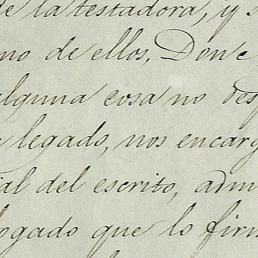 de la testadora, y s
no de ellos. Donc
alguna cosa no des
legado, nos encarg
ial del escrito, adm
ogado que lo firm